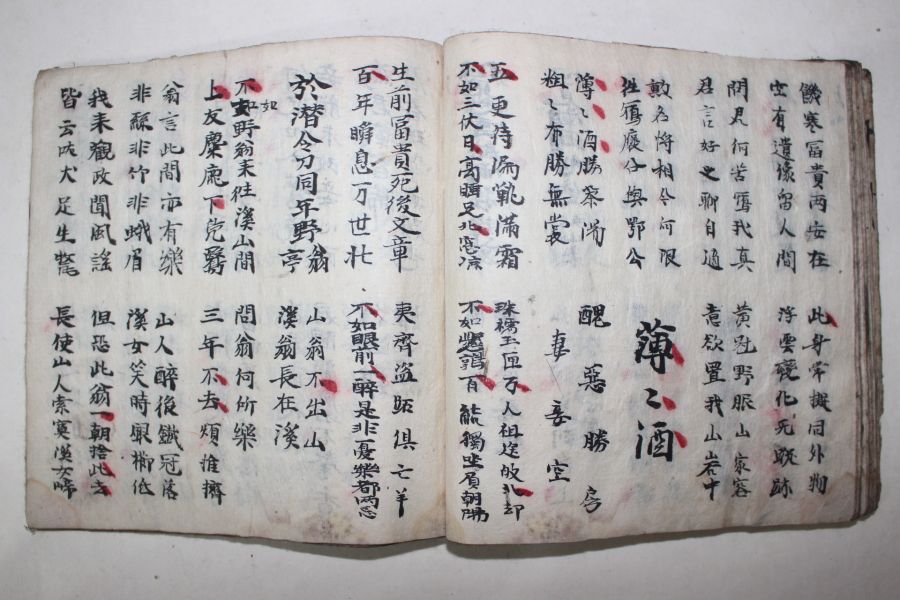 饑寒富貴兩安在
空有遺像留人間
此身常擬同外物
浮雲變化无蹤跡
問君何苦寫我真
君言好之聊自適
黃冠野服山家容
意欲置我山岩中
勳名將相今何限
往寫褒公與鄂公
薄〻酒
薄〻酒勝茶湯
粗〻布勝無裳
醜惡勝房
妻妾空
五更待漏靴滿霜
不如三伏日高睡足北窓凉
珠襦玉匣万人祖送歸北邙
不如懸鶉百結獨坐負朝陽
生前冨貴死後文章
百年瞬息万世忙
夷齊盜跖俱亡羊
不如眼前一醉是非憂樂都兩忘
於潛令刁同年野翁亭
山翁不出山
溪翁長在溪
不如野翁来往溪山間
上友麋鹿下鳧鷖
問翁何所樂
三年不去煩推擠
翁言此間亦有樂
非絲非竹非蛾眉
山人醉後鐵冠落
溪女笑時銀櫛低
我来觀政聞風謠
皆云吠犬足生氂
但恐此翁一朝捨此去
長使山人索寞溪女啼